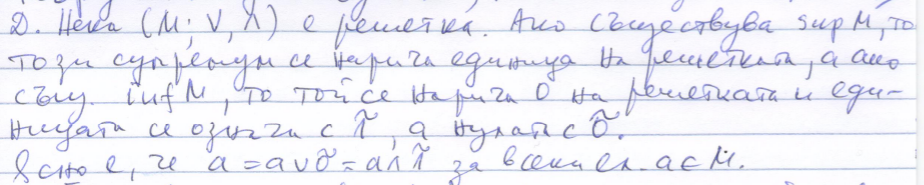 Д. Нека (M; ∨, ∧) е решетка. Ако съществува sup M, то
този супремум се нарича единица на решетката, а ако
същ. inf M, то той се нарича 0 на решетката и еди-
ницата се означ с 1̃, а нулата с 0̃.
Ясно е, че a = a∨0̃ = a∧1̃ за всеки ел. a∈M.